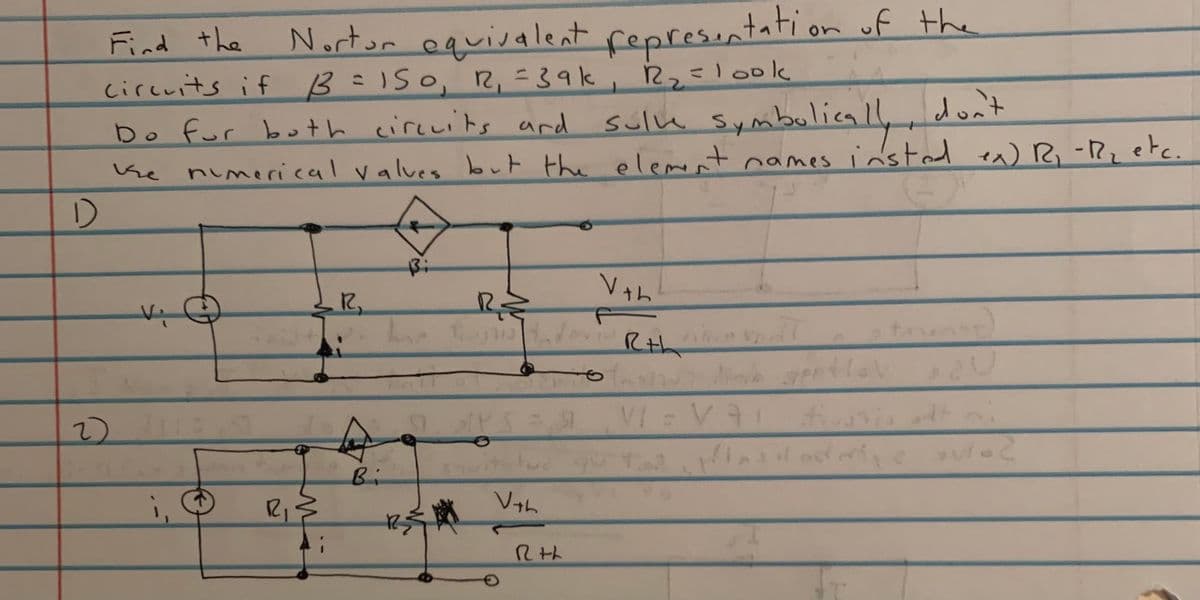 Find the Norton equivalent representation of the
circuits if β = 150, R₁ = 39k, R₂ = 100k
Do for both circuits and solve symbolically, don't
use numerical values but the element names instad ex) R₁ -R₂ etc.
1)
βi
Vi
R₁
R₂
Vth
i
Rth
2)
Bi
i₁
R₁
R₂
Vth
i
Rth